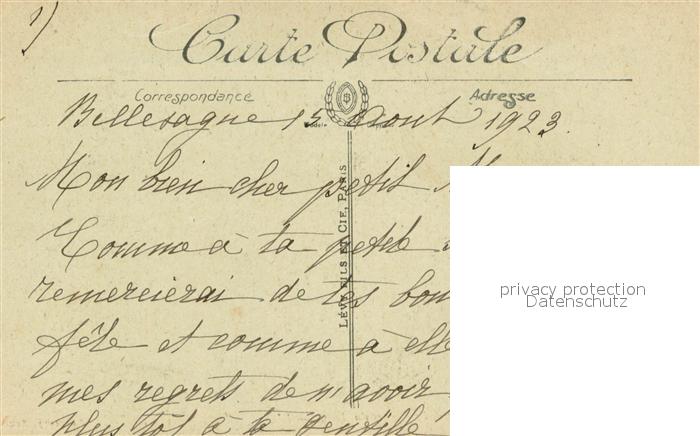 1)
Carte Postale
Correspondance
Adresse
Bellesagne 15 Aout 1923.
Mon bien cher petit
Comme à ta petite
remercierai de tes bon
fête et comme à elle
mes regrets de n'avoir
plus tôt à ta gentille
LÉVY FILS ET CIE, PARIS
privacy protection
Datenschutz